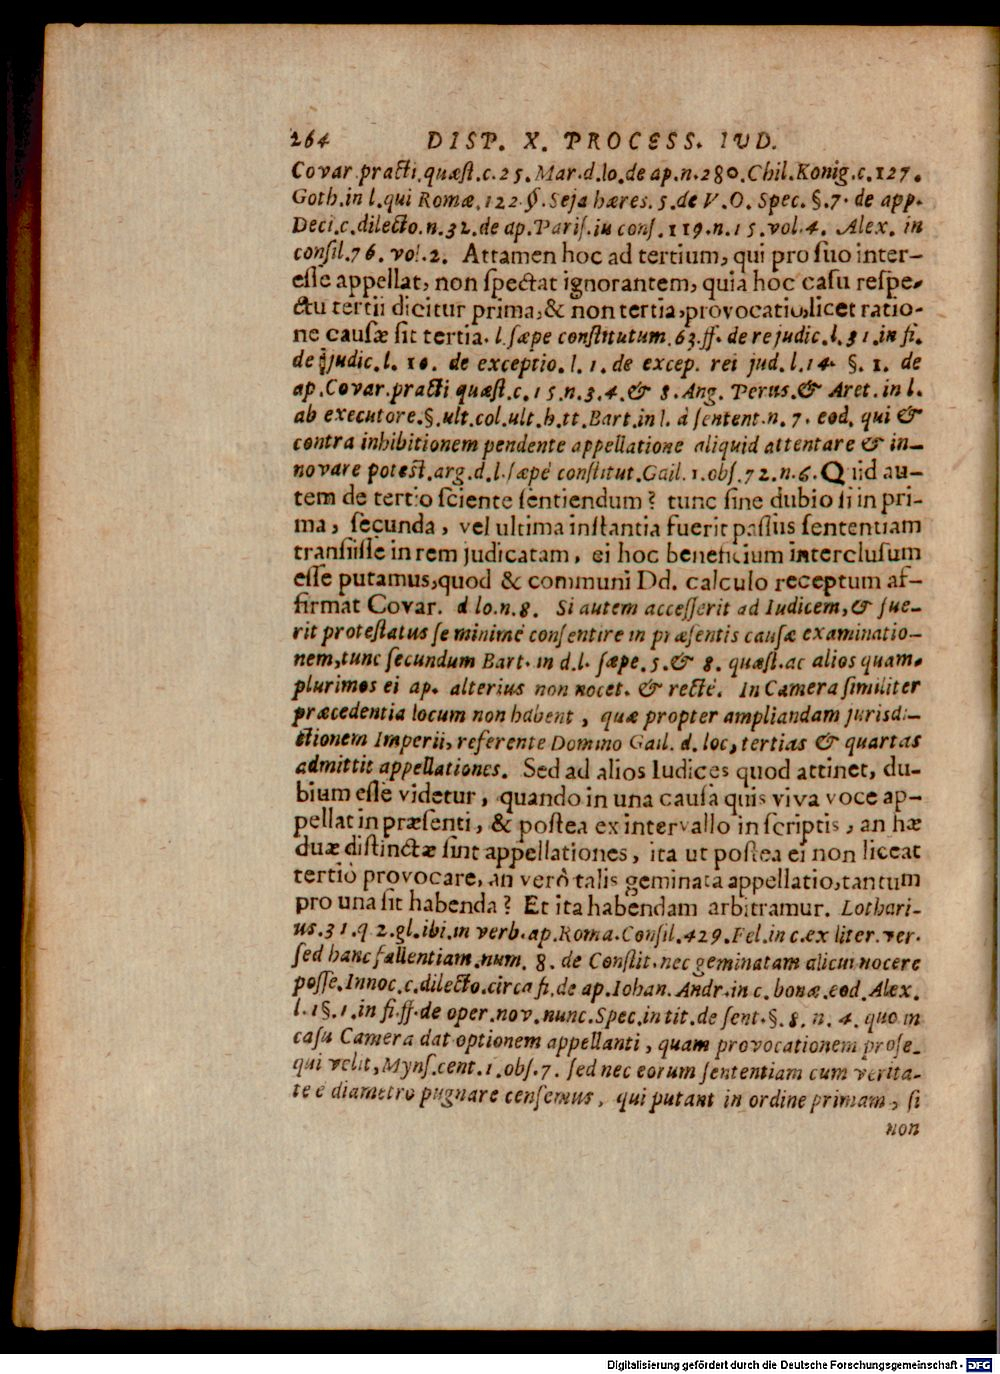 264 DISP. X. PROCESS. IUD.
Covar.practi.quæst.c.25. Mar.d.lo.de ap.n.280.Chil.Konig.c.127.
Goth.in l.qui Romæ.122.§.Seja hæres. 5.de V.O. Spec. §.7. de app.
Deci.c.dilecto.n.32.de ap.Paris.in cons.119.n.15.vol.4. Alex. in
consil.76. vol.2. Attamen hoc ad tertium, qui pro suo inter-
esse appellat, non spectat ignorantem, quia hoc casu respe-
ctu tertii dicitur prima,& non tertia,provocatio,licet ratio-
ne causæ sit tertia. l.sæpe constitutum.63.ff. de re judic.l.81.in fi.
de judic.l. 10. de exceptio.l.1. de excep. rei jud.l.14. §.1. de
ap.Covar.practi quæst.c.15.n.3.4.& 8.Ang. Perus.& Aret.in l.
ab executore.§.ult.col.ult.h.tt.Bart.in l. à sentent.n.7. eod. qui &
contra inhibitionem pendente appellatione aliquid attentare & in-
novare potest.arg.d.l.sæpè constitut.Gail.1.obs.72.n.6. Quid au-
tem de tertio sciente sentiendum? tunc sine dubio si in pri-
ma, secunda, vel ultima instantia fuerit passus sententiam
transiisse in rem judicatam, ei hoc beneficium interclusum
esse putamus,quod & communi Dd. calculo receptum af-
firmat Covar. d lo.n.8. Si autem accesserit ad Iudicem,& fue-
rit protestatus se minimè consentire in præsentis causæ examinatio-
nem,tunc secundum Bart. in d.l. sæpe.5.& 8. quæst.ac alios quam-
plurimos ei ap. alterius non nocet. & rectè. In Camera similiter
præcedentia locum non habent, quæ propter ampliandam jurisdi-
ctionem Imperii, referente Domino Gail. d. loc, tertias & quartas
admittit appellationes. Sed ad alios Iudices quod attinet, du-
bium esse videtur, quando in una causa quis viva voce ap-
pellat in præsenti, & postea ex intervallo in scriptis, an hæ
duæ distinctæ sint appellationes, ita ut postea ei non liceat
tertiò provocare, an verò talis geminata appellatio,tantum
pro una sit habenda? Et ita habendam arbitramur. Lothari-
us.31.q 2.gl.ibi.in verb.ap.Roma.Consil.429.Fel.in c.ex liter.ver.
sed hanc fallentiam.num. 8. de Constit.nec geminatam alicui nocere
posse.Innoc.c.dilecto.circa fi.de ap.Iohan. Andr.in c. bonæ.eod.Alex.
l.1§.1.in fi.ff.de oper.nov.nunc.Spec.in tit.de sent.§.8.n.4. quo in
casu Camera dat optionem appellanti, quam provocationem prose-
qui velit,Myns.cent.1.obs.7. sed nec eorum sententiam cum verita-
te è diametro pugnare censemus, qui putant in ordine primam, si
non
Digitalisierung gefördert durch die Deutsche Forschungsgemeinschaft - DFG